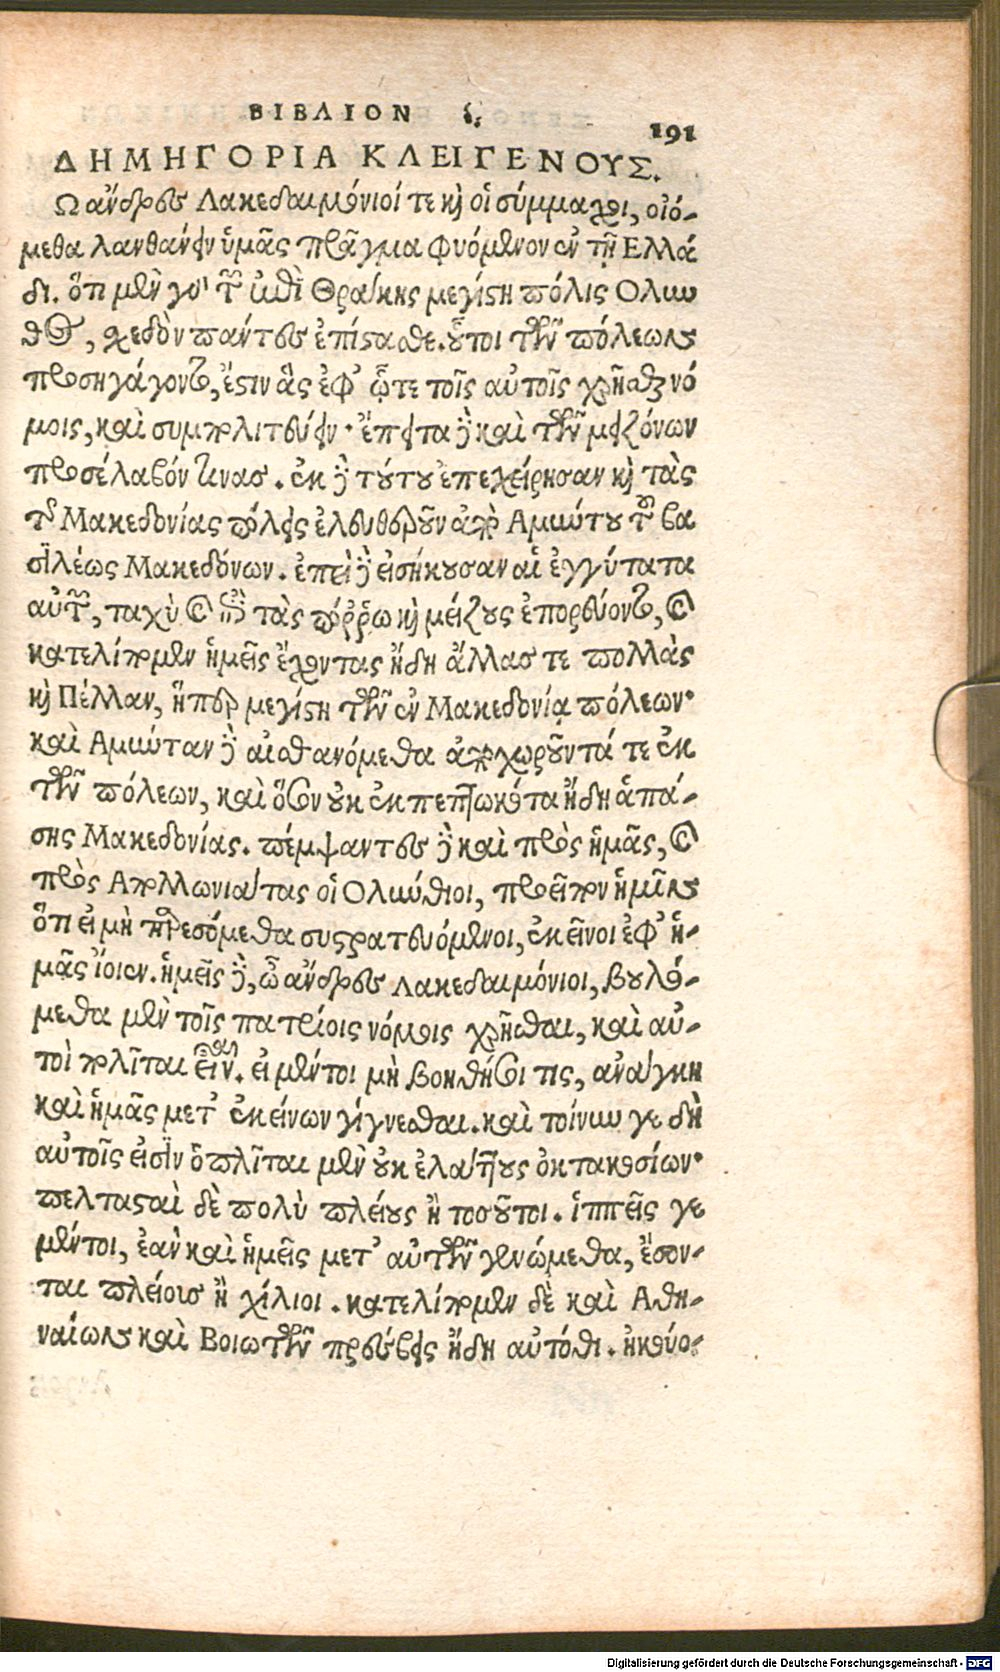 ΒΙΒΛΙΟΝ ε. 191
ΔΗΜΗΓΟΡΙΑ ΚΛΕΙΓΕΝΟΥΣ.
Ω ἄνδρες Λακεδαιμόνιοί τε καὶ οἱ σύμμαχοι, οἰό-
μεθα λανθάνειν ὑμᾶς πρᾶγμα φυόμενον ἐν τῇ Ελλά
δι. ὅτι μὲν γὰρ τῶν ἐπὶ Θρᾴκης μεγίστη πόλις Ολυν
θος, σχεδὸν πάντες ἐπίστασθε. οὗτοι τῶν πόλεων
προσηγάγοντο, ἔστιν ἃς ἐφ' ᾧτε τοῖς αὐτοῖς χρῆσθαι νό
μοις, καὶ συμπολιτεύειν· ἔπειτα δὲ καὶ τῶν μειζόνων
προσέλαβόν τινας. ἐκ δὲ τούτου ἐπεχείρησαν καὶ τὰς
τῆς Μακεδονίας πόλεις ἐλευθεροῦν ἀπὸ Αμύντου τοῦ βα
σιλέως Μακεδόνων. ἐπεὶ δὲ εἰσήκουσαν αἱ ἐγγύτατα
αὐτῶν, ταχὺ καὶ ἐπὶ τὰς πόῤῥω καὶ μείζους ἐπορεύοντο, καὶ
κατελίπομεν ἡμεῖς ἔχοντας ἤδη ἄλλας τε πολλὰς
καὶ Πέλλαν, ἥπερ μεγίστη τῶν ἐν Μακεδονίᾳ πόλεων·
καὶ Αμύνταν δὲ αἰσθανόμεθα ἀποχωροῦντά τε ἐκ
τῶν πόλεων, καὶ ὅσον οὐκ ἐκπεπτωκότα ἤδη ἁπά-
σης Μακεδονίας. πέμψαντες δὲ καὶ πρὸς ἡμᾶς, καὶ
πρὸς Απολλωνιάτας οἱ Ολύνθιοι, προεῖπον ἡμῖν
ὅτι εἰ μὴ παρεσόμεθα συστρατευόμενοι, ἐκεῖνοι ἐφ' ἡ-
μᾶς ἴοιεν. ἡμεῖς δὲ, ὦ ἄνδρες Λακεδαιμόνιοι, βουλό-
μεθα μὲν τοῖς πατρίοις νόμοις χρῆσθαι, καὶ αὐ-
τοὶ πολῖται εἶναι. εἰ μέντοι μὴ βοηθήσει τις, ἀνάγκη
καὶ ἡμᾶς μετ' ἐκείνων γίγνεσθαι. καὶ τοίνυν γε δὴ
αὐτοῖς εἰσὶν ὁπλῖται μὲν οὐκ ἐλάττους ὀκτακοσίων·
πελτασταὶ δὲ πολὺ πλείους ἢ τοσοῦτοι. ἱππεῖς γε
μέντοι, ἐὰν καὶ ἡμεῖς μετ' αὐτῶν γενώμεθα, ἔσον-
ται πλείους ἢ χίλιοι. κατελίπομεν δὲ καὶ Αθη-
ναίων καὶ Βοιωτῶν πρέσβεις ἤδη αὐτόθι. ἠκούο-
Digitalisierung gefördert durch die Deutsche Forschungsgemeinschaft - DFG